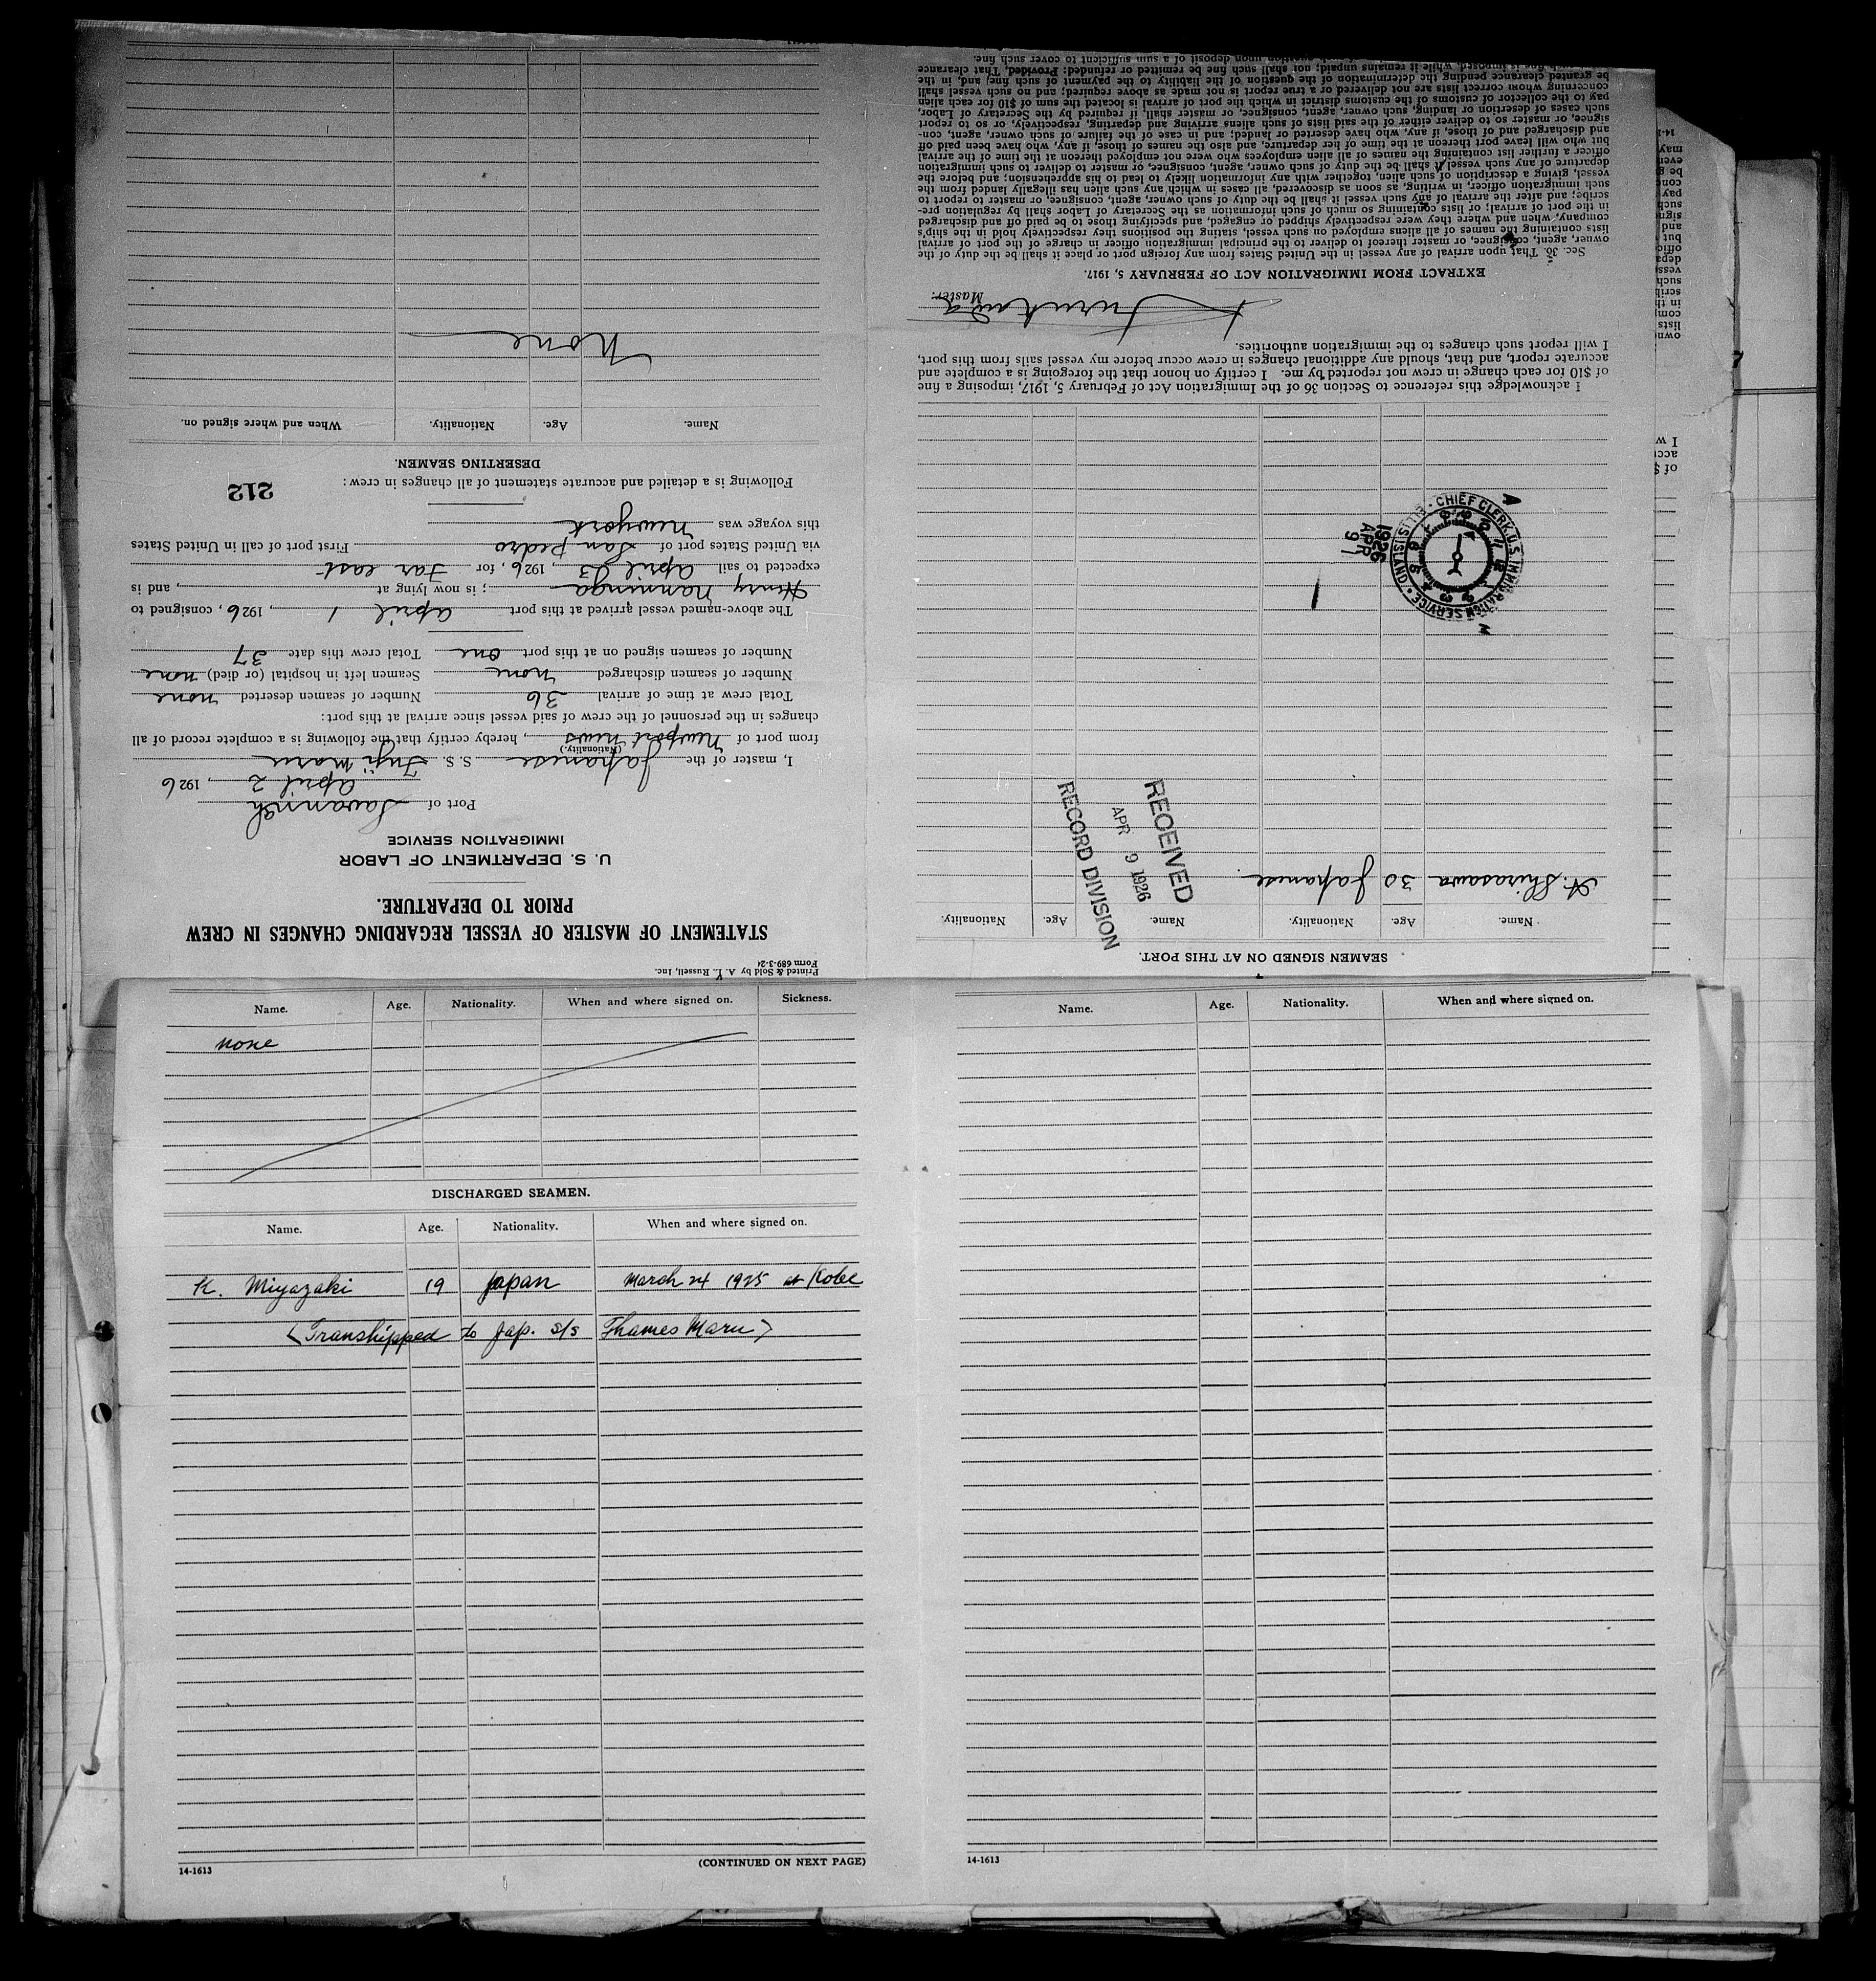 Printed & Sold by A. L. Russell, Inc.
Form 689-3-24
STATEMENT OF MASTER OF VESSEL REGARDING CHANGES IN CREW
PRIOR TO DEPARTURE.
U. S. DEPARTMENT OF LABOR
IMMIGRATION SERVICE
Port of Savannah
April 2, 1926
I, master of the Japanese S. S. Fuji Maru
(Nationality.)
from port of Newport News, hereby certify that the following is a complete record of all
changes in the personnel of the crew of said vessel since arrival at this port:
Total crew at time of arrival 36 Number of seamen deserted none
Number of seamen discharged none Seamen left in hospital (or died) none
Number of seamen signed on at this port one Total crew this date 37
The above-named vessel arrived at this port April 1, 1926, consigned to
Henry Nanninga; is now lying at , and is
expected to sail April 23, 1926, for Far east
via United States port of San Pedro First port of call in United States
this voyage was Newyork
Following is a detailed and accurate statement of all changes in crew:
212
DESERTING SEAMEN.
Name. Age. Nationality. When and where signed on.
None
SEAMEN SIGNED ON AT THIS PORT.
Name. Age. Nationality. Name. Age. Nationality.
Shirasawa 30 Japanese.
RECEIVED
APR 9 1926
RECORD DIVISION
CHIEF CLERK, U.S. IMMIGRATION SERVICE · ELLIS ISLAND ·
1926
APR
9
I acknowledge this reference to Section 36 of the Immigration Act of February 5, 1917, imposing a fine
of $10 for each change in crew not reported by me. I certify on honor that the foregoing is a complete and
accurate report, and that, should any additional changes in crew occur before my vessel sails from this port,
I will report such changes to the immigration authorities.
Master.
EXTRACT FROM IMMIGRATION ACT OF FEBRUARY 5, 1917.
Sec. 36. That upon arrival of any vessel in the United States from any foreign port or place it shall be the duty of the
owner, agent, consignee, or master thereof to deliver to the principal immigration officer in charge of the port of arrival
lists containing the names of all aliens employed on such vessel, stating the positions they respectively hold in the ship's
company, when and where they were respectively shipped or engaged, and specifying those to be paid off and discharged
in the port of arrival; or lists containing so much of such information as the Secretary of Labor shall by regulation pre-
scribe; and after the arrival of any such vessel it shall be the duty of such owner, agent, consignee, or master to report to
such immigration officer, in writing, as soon as discovered, all cases in which any such alien has illegally landed from the
vessel, giving a description of such alien, together with any information likely to lead to his apprehension; and before the
departure of any such vessel it shall be the duty of such owner, agent, consignee, or master to deliver to such immigration
officer a further list containing the names of all alien employees who were not employed thereon at the time of the arrival
but who will leave port thereon at the time of her departure, and also the names of those, if any, who have been paid off
and discharged and of those, if any, who have deserted or landed; and in case of the failure of such owner, agent, con-
signee, or master so to deliver either of the said lists of such aliens arriving and departing, respectively, or so to report
such cases of desertion or landing, such owner, agent, consignee, or master shall, if required by the Secretary of Labor,
pay to the collector of customs of the customs district in which the port of arrival is located the sum of $10 for each alien
concerning whom correct lists are not delivered or a true report is not made as above required; and no such vessel shall
be granted clearance pending the determination of the question of the liability to the payment of such fine, and, in the
such fine is imposed, while it remains unpaid; nor shall such fine be remitted or refunded: Provided, That clearance
question upon deposit of a sum sufficient to cover such fine.
Name. Age. Nationality. When and where signed on. Sickness.
none
DISCHARGED SEAMEN.
Name. Age. Nationality. When and where signed on.
K. Miyazaki 19 Japan March 24 1925 at Kobe
<Transhipped to Jap. s/s Thames Maru>
14-1613
(CONTINUED ON NEXT PAGE)
Name. Age. Nationality. When and where signed on.
14-1613